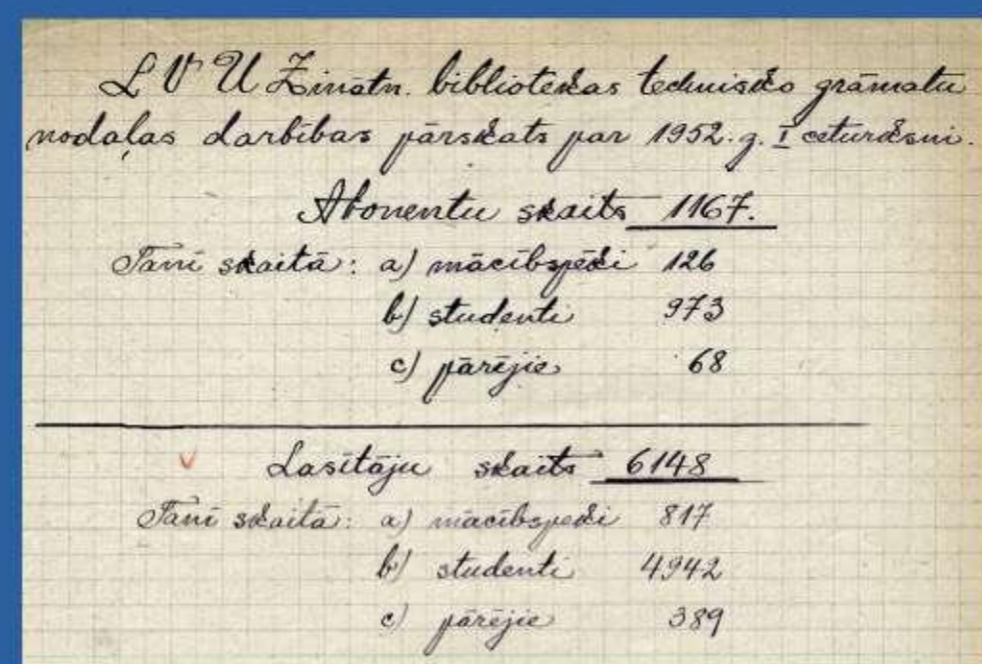 L V U Zinātn. bibliotekas technisko grāmatu
nodaļas darbības pārskats par 1952. g. I ceturksni.
Abonentu skaits 1167.
Tanī skaitā: a) mācībspēki 126
b) studenti 973
c) pārējie 68
Lasītāju skaits 6148
Tanī skaitā: a) mācībspēki 817
b) studenti 4942
c) pārējie 389